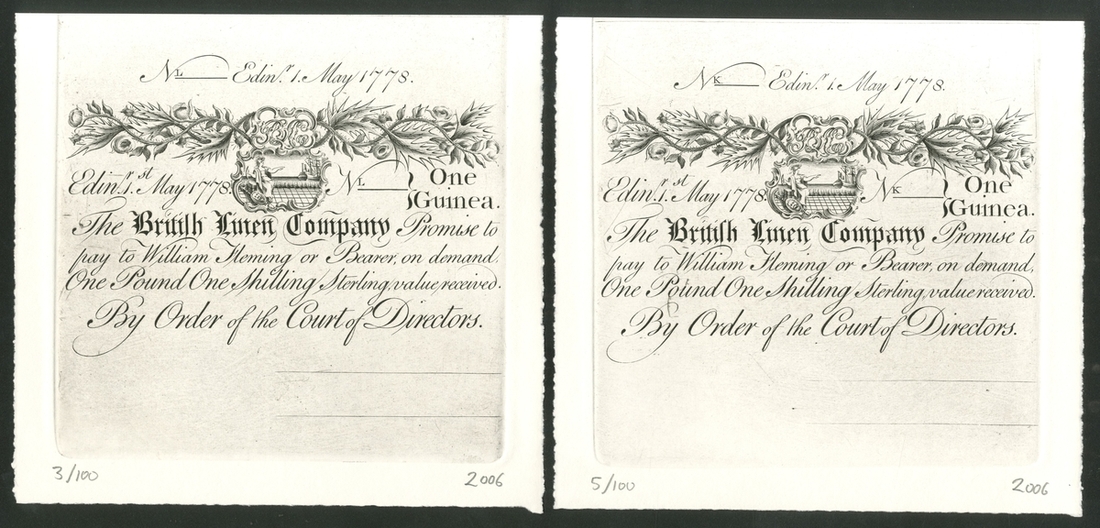 N L Edinr. 1. May 1778.
BLC
Edinr. 1.st May 1778. N L One
Guinea.
The British Linen Company Promise to
pay to William Fleming or Bearer, on demand,
One Pound One Shilling Sterling, value received.
By Order of the Court of Directors.
3/100 2006
N K Edinr. 1. May 1778.
BLC
Edinr. 1.st May 1778. N K One
Guinea.
The British Linen Company Promise to
pay to William Fleming or Bearer, on demand,
One Pound One Shilling Sterling, value received.
By Order of the Court of Directors.
5/100 2006